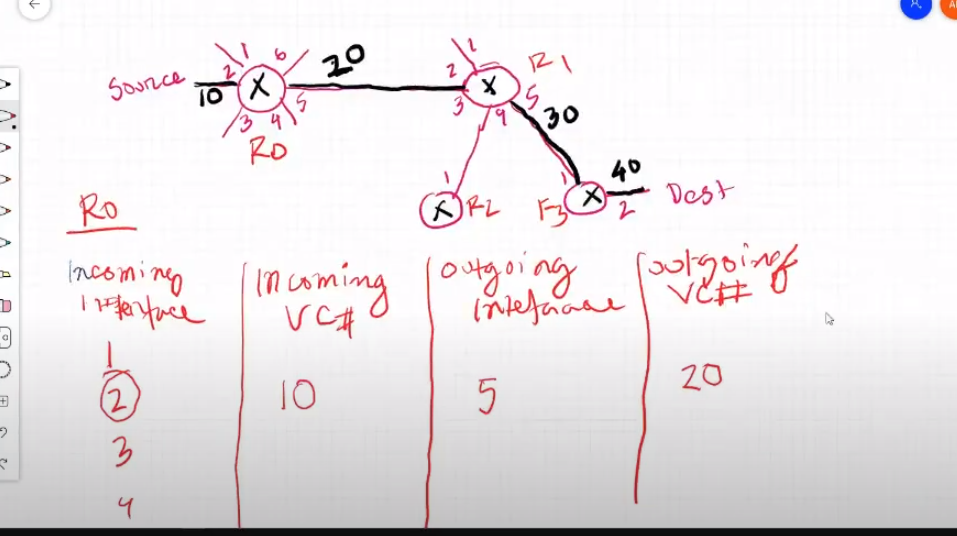 Source
10
2
1
6
X
20
5
3
4
R0
1
2
X
R1
3
4
5
30
1
X
R2
1
X
40
R3
2
Dest
R0
Incoming
Interface
Incoming
VC#
Outgoing
Interface
Outgoing
VC#
1
2
10
5
20
3
4